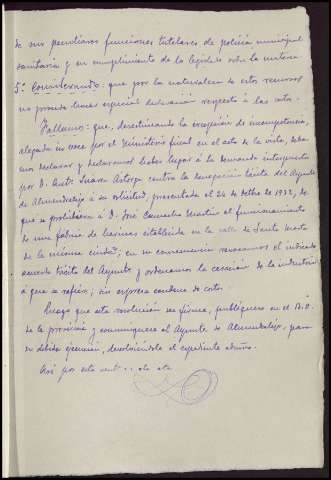 de sus peculiares funciones tutelares de policía municipal
sanitaria y en cumplimiento de lo legislado sobre la materia
5º Considerando: que por la naturaleza de estos recursos
no procede hacer especial declaración respecto a las costas.
Fallamos: que, desestimando la excepción de incompetencia,
alegada in voce por el Ministerio fiscal en el acto de la vista, debe-
mos declarar y declaramos haber lugar a la demanda interpuesta
por D. Antº Suarez Astorga contra la denegación tácita del Aymto
de Almendralejo a su solicitud, presentada el 24 de Octbre de 1932, de
que se prohibiera a D. José Camacho Martín el funcionamiento
de una fábrica de harinas establecida en la calle de Santa Marta
de la misma ciudad; en su consecuencia revocamos el indicado
acuerdo tácito del Aymto y ordenamos la cesación de la industria
a que se refiere; sin expresa condena de costas.
Luego que esta resolución sea firme, publíquese en el B.O.
de la provincia y comuníquese al Aymto de Almendralejo, para
su debida ejecución, devolviéndole el expediente
Así por esta sent.. etc etc